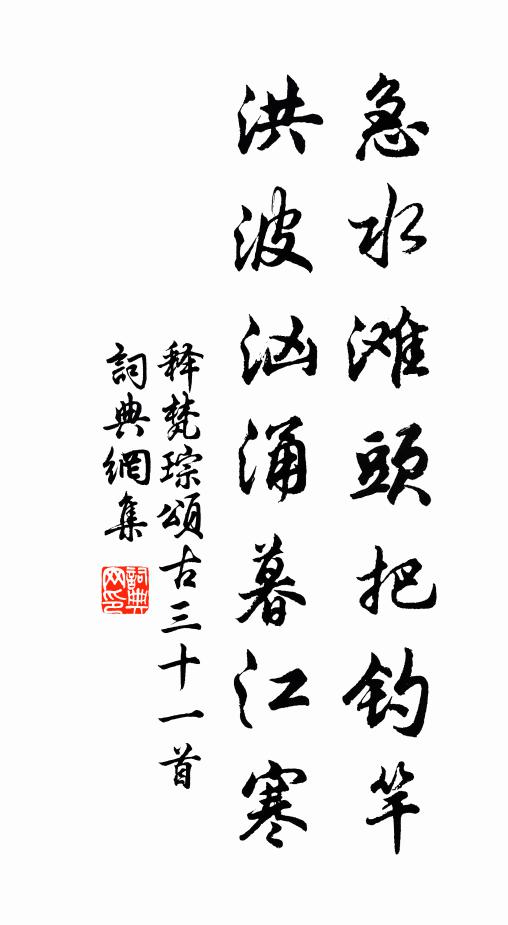 急水滩頭把钓竿
洪波汹涌暮江寒
释梵琮頌古三十一首
詞典網集
詞典网印